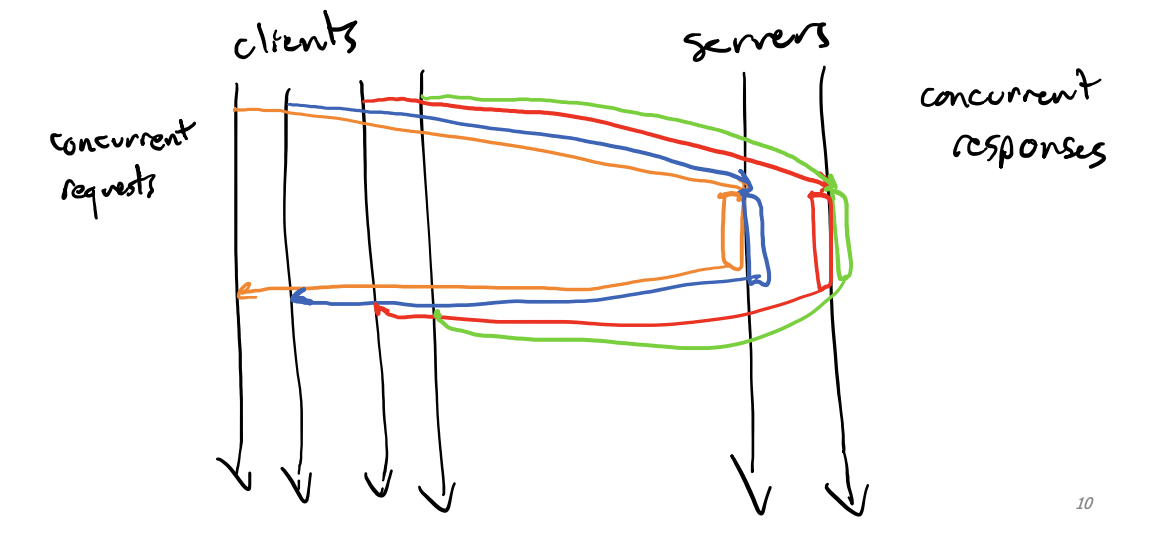 clients
servers
concurrent
requests
concurrent
responses
10